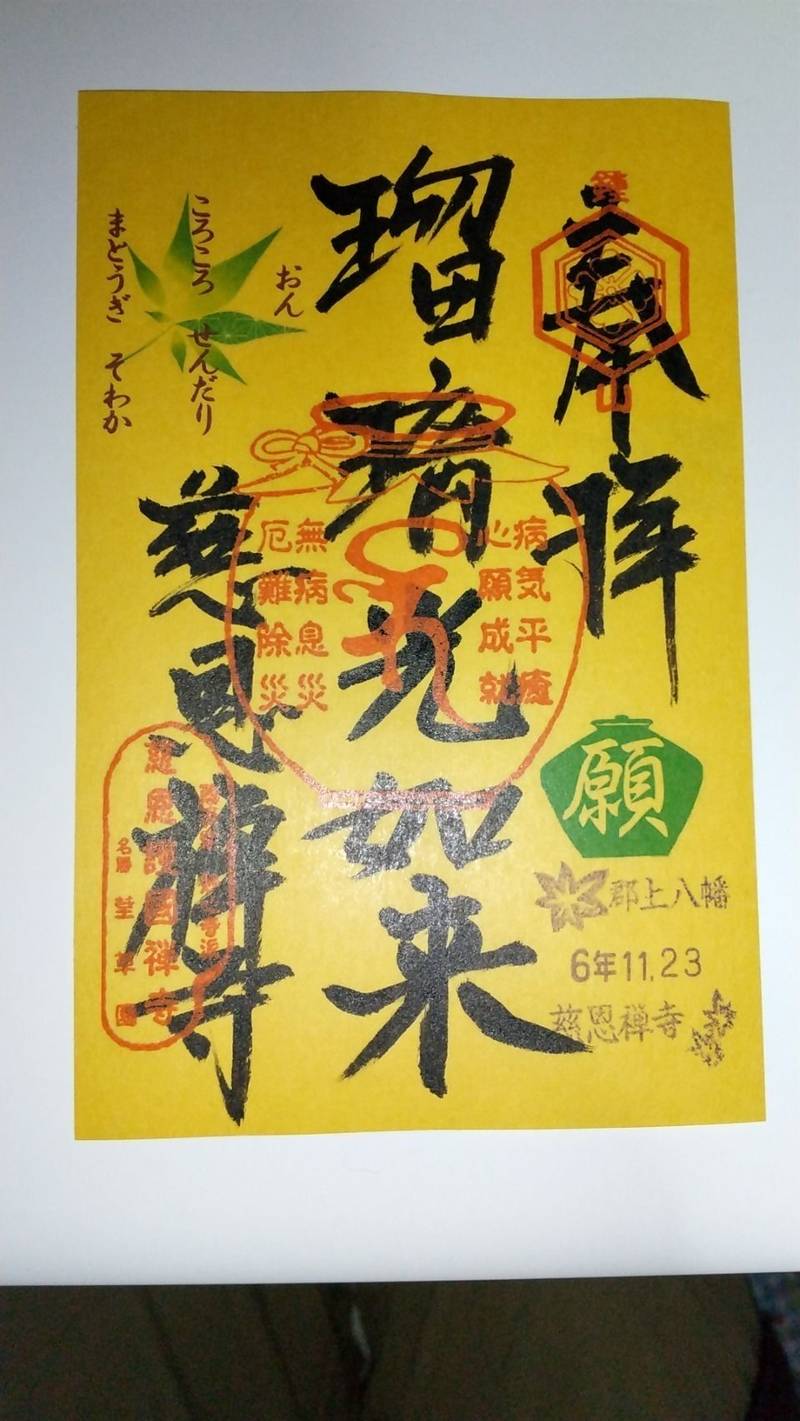 奉拝
瑠璃光如来
慈恩禅寺
おん
ころころ せんだり
まとうぎ そわか
病気平癒
心願成就
無病息災
厄難除災
願
郡上八幡
6年11.23
慈恩禅寺
慈恩護國禅寺
名勝 荎草園